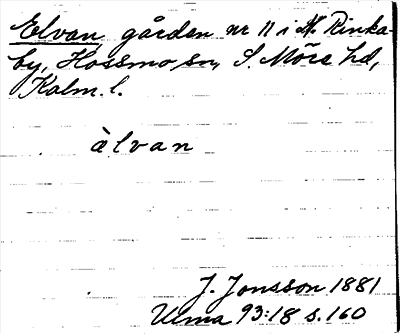 Elvan, gården nr 11 i St. Rinka-
by, Hossmo sn, S. Möre hd,
Kalm. l.
àlvan
J. Jonsson 1881
Ulma 93:18 s. 160